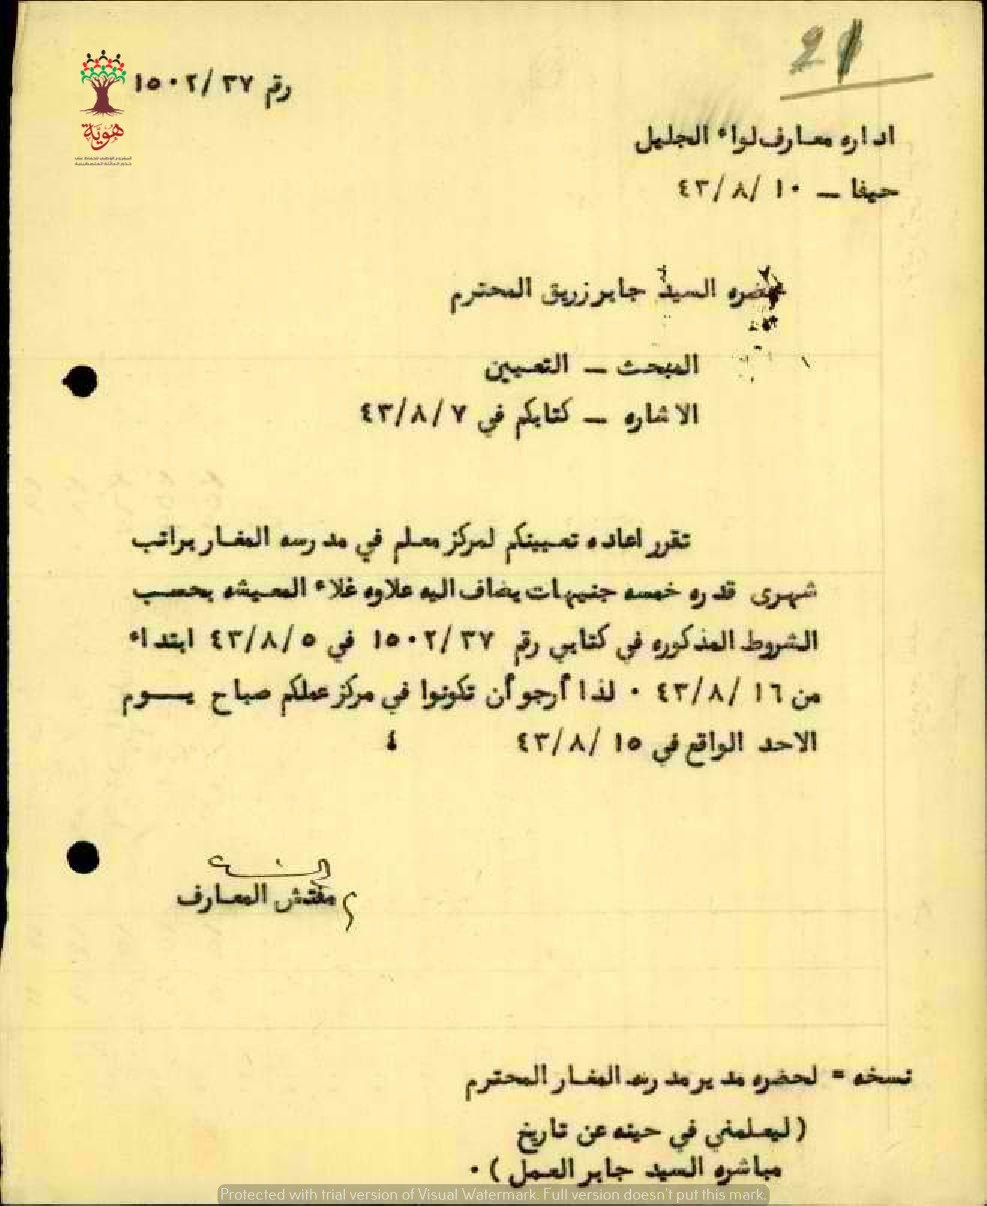 21
رقم ١٥٠٢/٣٧
هوية
اداره معارف لواء الجليل
حيفا – ١٠ /٤٣/٨
حضره السيد جابر زريق المحترم
المبحث – التعيين
الاشاره – كتابكم في ٤٣/٨/٧
تقرر اعاده تعيينكم لمركز معلم في مدرسه المغار براتب
شهرى قدره خمسه جنيهات يضاف اليه علاوه غلاء المعيشه بحسب
الشروط المذكوره في كتابي رقم ١٥٠٢/٣٧ في ٤٣/٨/٥ ابتداء
من ٤٣/٨/١٦ ٠ لذا أرجو أن تكونوا في مركز عملكم صباح يـــوم
الاحد الواقع في ١٥ /٤٣/٨
مفتش المعارف
نسخه = لحضره مدير مدرسه المغار المحترم
(ليعلمني في حينه عن تاريخ
مباشره السيد جابر العمل) ٠
Protected with trial version of Visual Watermark. Full version doesn't put this mark.